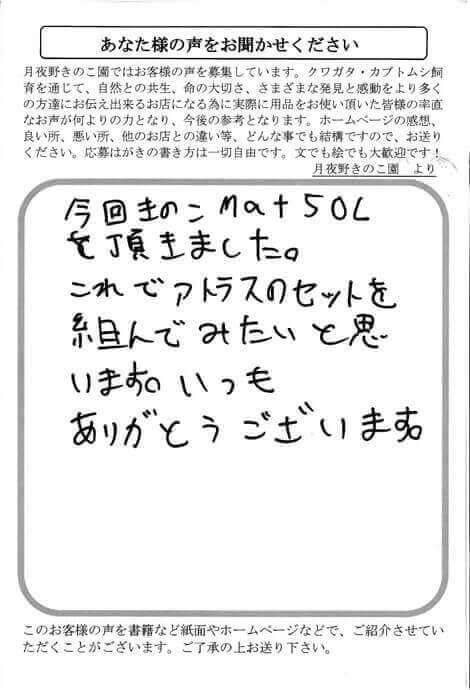 あなた様の声をお聞かせください
月夜野きのこ園ではお客様の声を募集しています。クワガタ・カブトムシ飼
育を通じて、自然との共生、命の大切さ、さまざまな発見と感動をより多く
の方達にお伝え出来るお店になる為に実際に用品をお使い頂いた皆様の率直
なお声が何よりの力となり、今後の参考となります。ホームページの感想、
良い所、悪い所、他のお店との違い等、どんな事でも結構ですので、お送り
ください。応募はがきの書き方は一切自由です。文でも絵でも大歓迎です！
月夜野きのこ園　より
今回きのこMat50L
を頂きました。
これでアトラスのセットを
組んでみたいと思
います。いつも
ありがとうございます。
このお客様の声を書籍など紙面やホームページなどで、ご紹介させてい
ただくことがございます。ご了承の上お送り下さい。